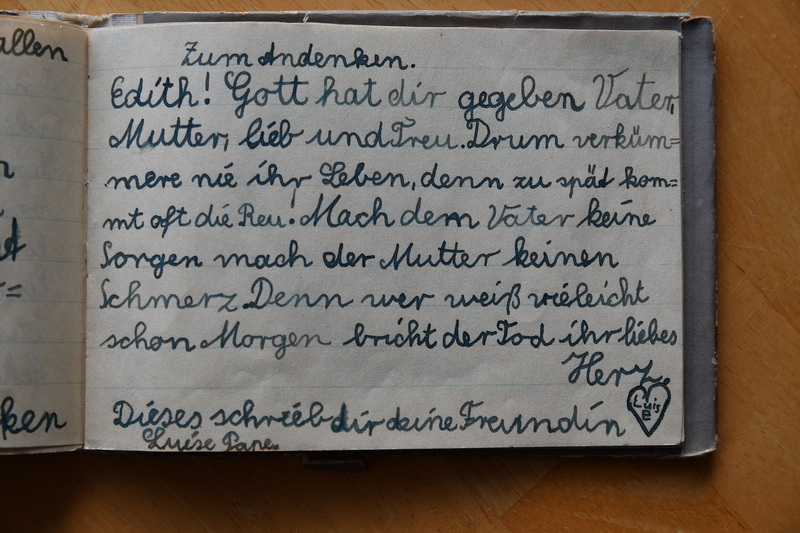 allen
ken
Zum Andenken.
Edith! Gott hat dir gegeben Vater,
Mutter, lieb und Treu. Drum verküm=
mere nie ihr Leben, denn zu spät kom=
mt oft die Reu! Mach dem Vater keine
Sorgen mach der Mutter keinen
Schmerz. Denn wer weiß vieleicht
schon Morgen bricht der Tod ihr liebes
Herz.
Dieses schrieb dir deine Freundin
Luise Pape.
Luis
E